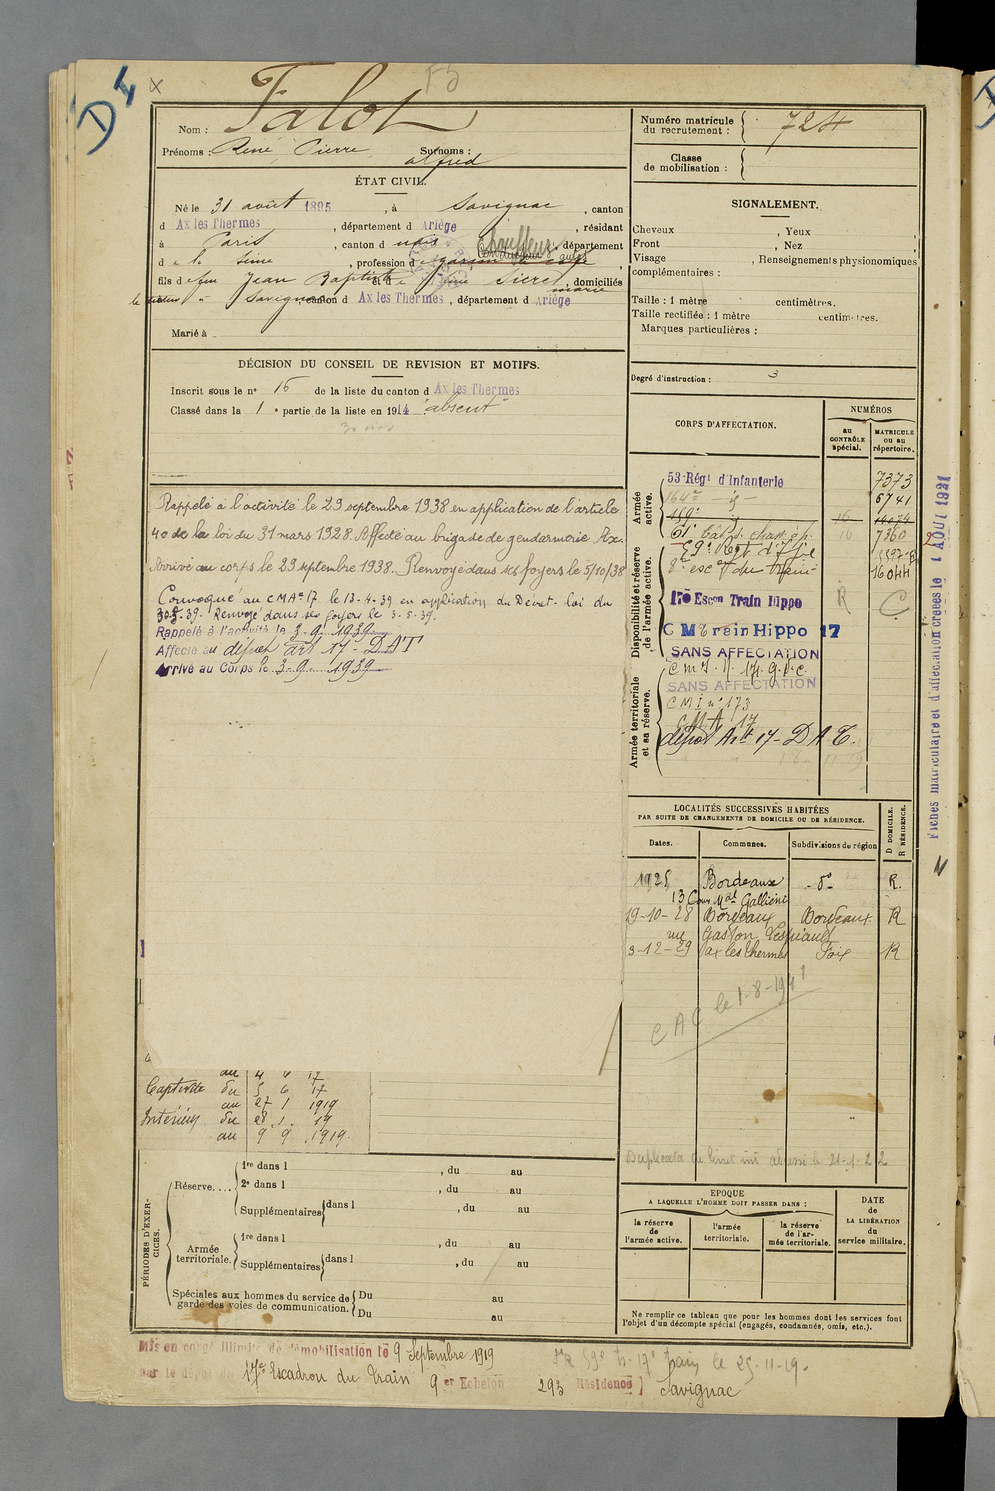 D4
F5
Nom : Falot
Prénoms : René, Pierre, Surnoms :
alfred
ÉTAT CIVIL.
Né le 31 août 1895, à Savignac, canton
d Ax les Thermes, département d Ariège, résidant
à Paris, canton d, département
d e la Seine, profession d
fils d efeu Jean Baptiste et d e, domiciliés
Savignac canton d Ax les Thermes, département d Ariège
Marié à
DÉCISION DU CONSEIL DE REVISION ET MOTIFS.
Inscrit sous le n° 16 de la liste du canton d Ax les Thermes
Classé dans la 1 e partie de la liste en 1914 "absent"
Rappelé à l'activité le 29 septembre 1938 en application de l'article
40 de la loi du 31 mars 1928. Affecté au brigade de gendarmerie Ax.
Arrivé au corps le 29 septembre 1938. Renvoyé dans ses foyers le 5/10/38
Convoqué au CMA n° 17 le 13-4-39 en application du Décret-loi du
39. Renvoyé dans ses foyers le 3-5-39.
Rappelé à l'activité le 3-9-1939
Affecté au dépôt art 17 - DAT
Arrivé au Corps le 3-9-1939
au 4 6 17
Captivité du 5 6 17
au 27 1 1919
Intérieur du 28 1 19
au 9 9 1919.
PÉRIODES D'EXERCICES.
Réserve....
1re dans l, du au
2e dans l, du au
Supplémentaires dans l, du au
Armée territoriale.
1re dans l, du au
Supplémentaires dans l, du au
Spéciales aux hommes du service de garde des voies de communication.
Du au
Du au
Mis en congé illimité de démobilisation le 9 Septembre 1919
par le dépôt du 17e Escadron du Train 9 er Echelon 293 Résidence Savignac
Numéro matricule du recrutement : 724
Classe de mobilisation :
SIGNALEMENT.
Cheveux, Yeux
Front, Nez
Visage, Renseignements physionomiques
complémentaires :
Taille : 1 mètre centimètres.
Taille rectifiée : 1 mètre centimètres.
Marques particulières :
Degré d'instruction : 3
CORPS D'AFFECTATION.
NUMÉROS
au CONTRÔLE spécial.
MATRICULE ou au répertoire.
Armée active.
53e Régt d'Infanterie 7373
164e - id - 6741
16 14074
61e Bat. de chass. à p. 16 7360
Disponibilité et réserve de l'armée active.
59e Regt d'Ifie
8e esc on du train 16044
17e Escon Train Hippo R C
C M Train Hippo 17
SANS AFFECTATION
Armée territoriale et sa réserve.
SANS AFFECTATION
C M I n° 173
C.M.A. 17
dépôt Art 17 - D A T.
LOCALITÉS SUCCESSIVES HABITÉES
PAR SUITE DE CHANGEMENTS DE DOMICILE OU DE RÉSIDENCE.
Dates. Communes. Subdivisions de région
D DOMICILE.
R RÉSIDENCE.
1925 Bordeaux - d° - R.
13 Cours Mal Galliéni
19-10-28 Bordeaux Bordeaux R
rue Gaston Lespiault
3-12-29 Ax les Thermes Foix R
CAC le 1-8-1941
Duplicata du livret ind adressé le 21-1-22
EPOQUE
A LAQUELLE L'HOMME DOIT PASSER DANS :
la réserve de l'armée active.
l'armée territoriale.
la réserve de l'armée territoriale.
DATE de LA LIBÉRATION du service militaire.
Ne remplir ce tableau que pour les hommes dont les services font
l'objet d'un décompte spécial (engagés, condamnés, omis, etc.).
le 25-11-19.
Fiches matriculaire et d'affectation créées le 1 AOUT 1921